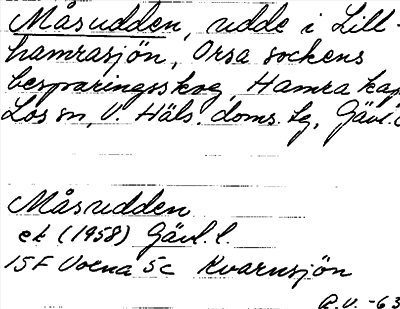 Måsudden, udde i Lill-
hamrasjön, Orsa sockens
besparingsskog, Hamra kap
Los sn, V. Häls. doms. tg, Gävl. l
Måsudden
ek (1958) Gävl. l.
15F Voxna 5c Kvarnsjön
R.V. -63